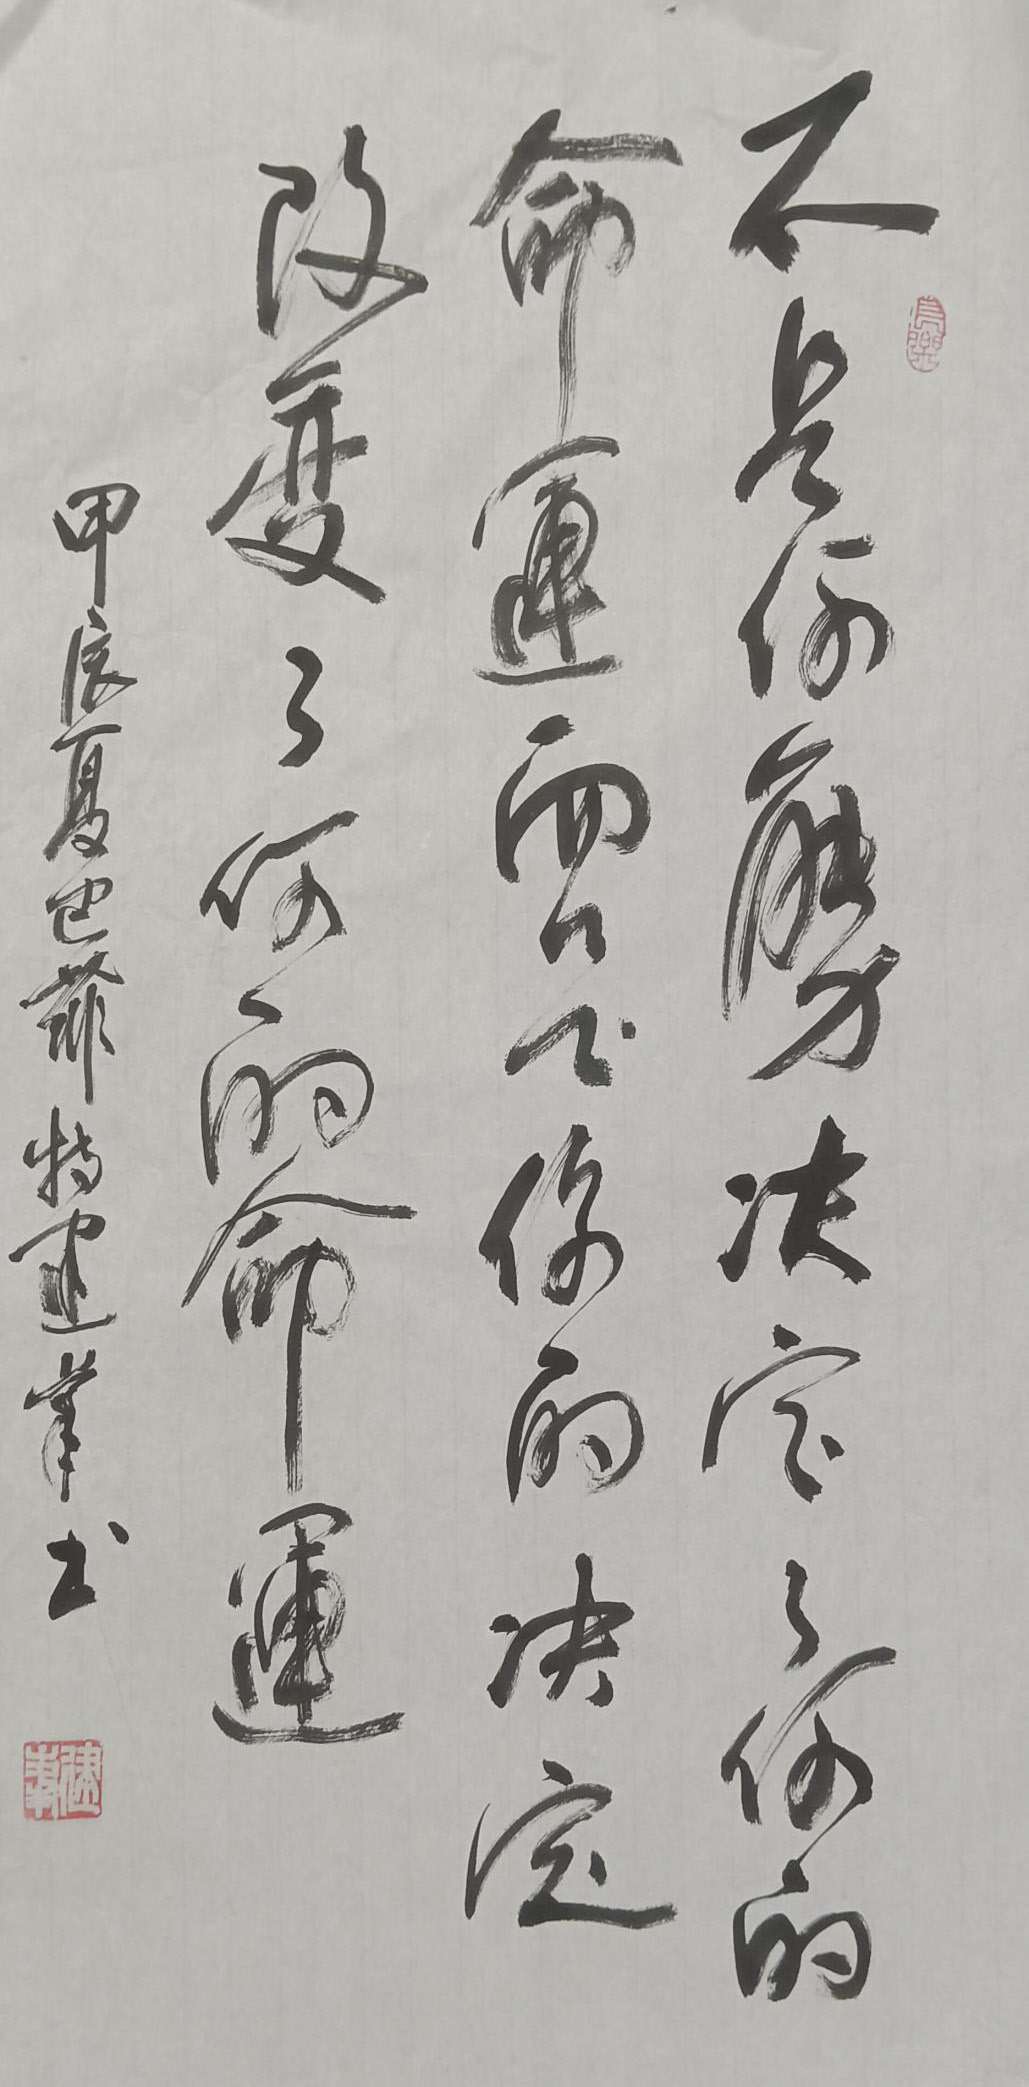 不是你努力决定了你的
命運而是你的决定
改變了你的命運
甲辰夏巴菲特建華书